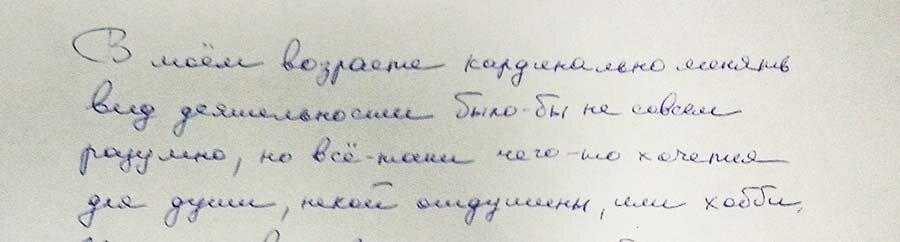 В моём возрасте кардинально менять
вид деятельности было-бы не совсем
разумно, но всё-таки чего-то хочется
для души, некой отдушины, или хобби.